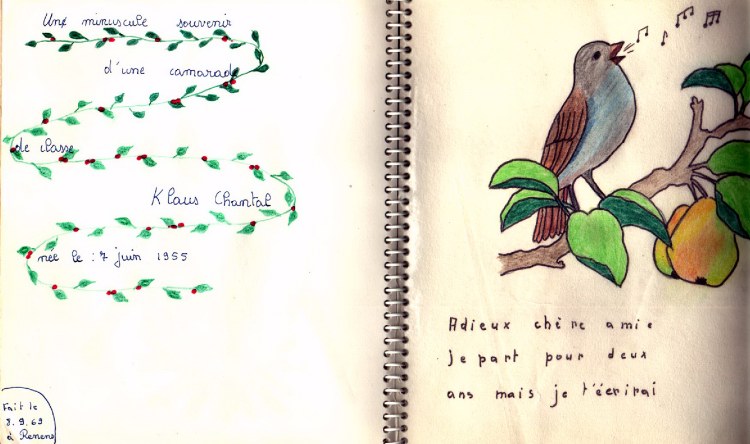 Une minuscule souvenir
d'une camarade
de classe
Klaus Chantal
née le : 7 juin 1955
Fait le
8.9.69
à Renens
Adieux chère amie
je part pour deux
ans mais je t'éérirai